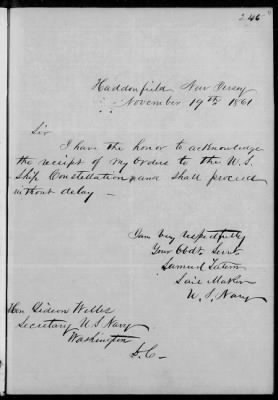 246
Haddonfield New Jersey
November 19th 1861
Sir
I have the honor to acknowledge
the receipt of my orders to the U.S.
Ship Constellation and shall proceed
without delay —
I am very respectfully
Your Obdt. Servt
Samuel Tatem
Sail Maker
U. S. Navy
Hon Gideon Welles
Secretary U S Navy
Washington
D. C—